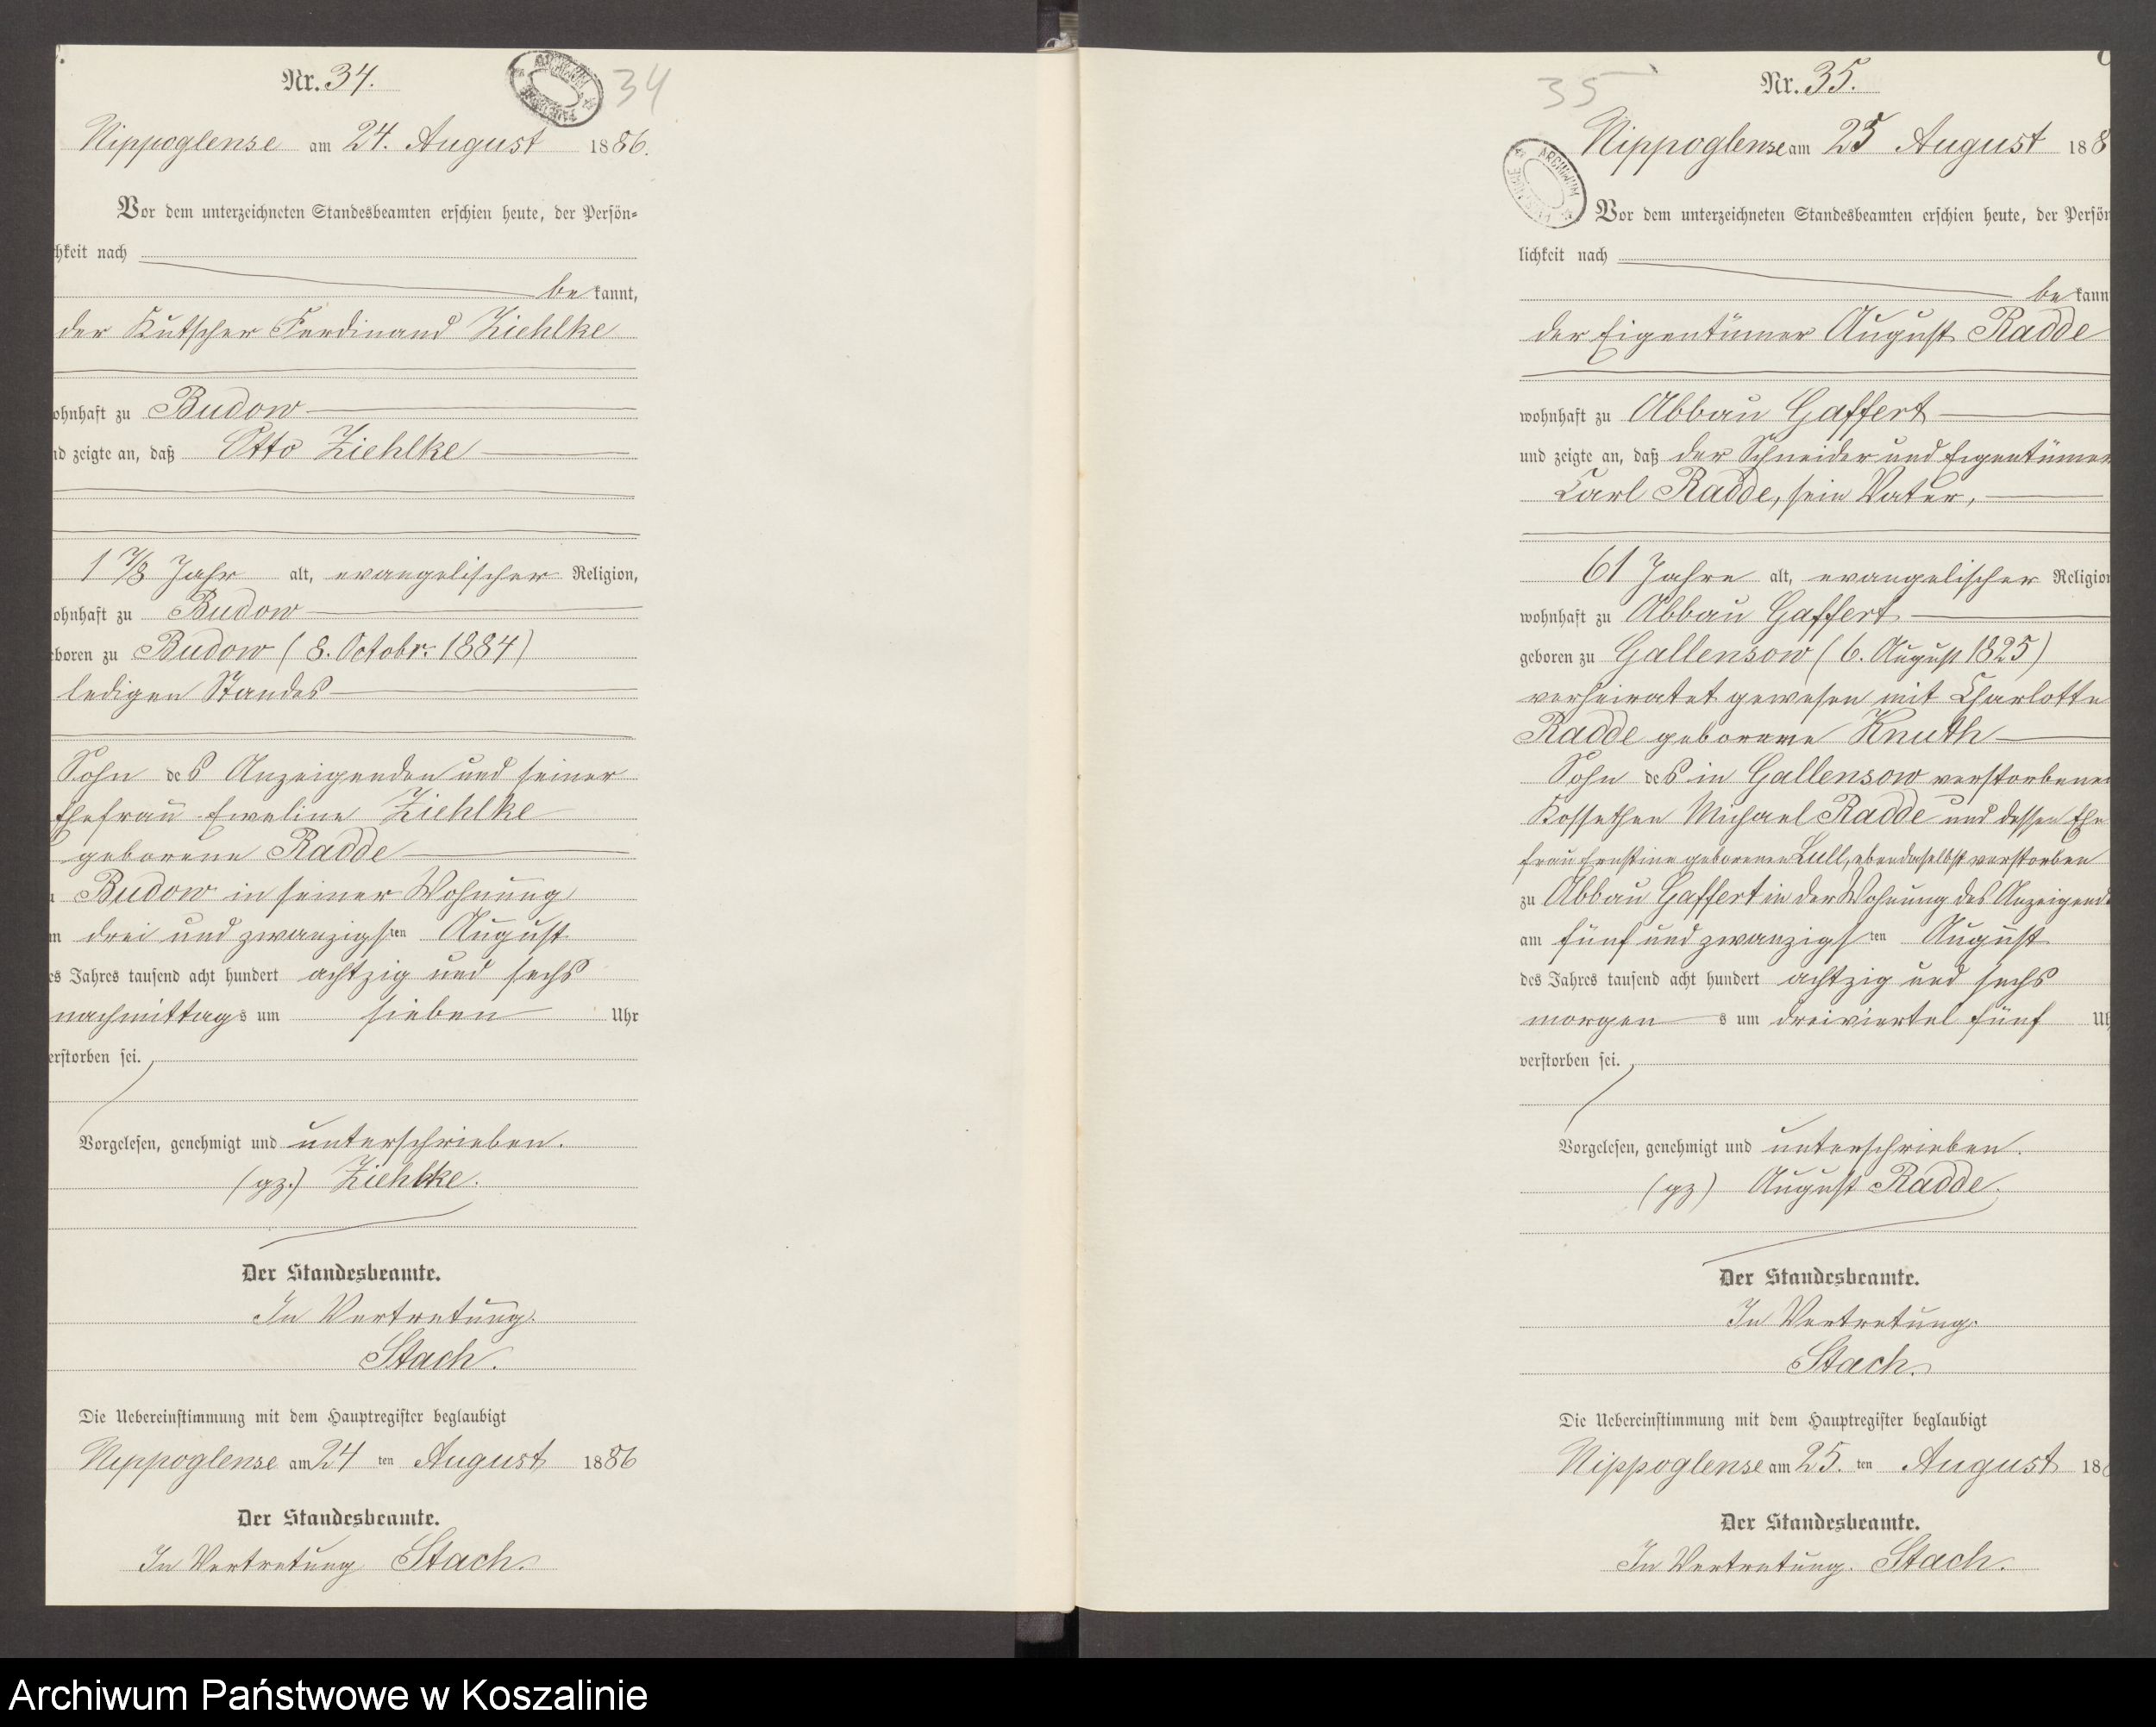 Nr. 34.
34
Nippoglense am 24. August 1886.
Vor dem unterzeichneten Standesbeamten erschien heute, der Persön=
hkeit nach
be kannt,
der Kutscher Ferdinand Ziehlke
ohnhaft zu Budow
nd zeigte an, daß Otto Ziehlke
1 7/8 Jahr alt, evangelischer Religion,
ohnhaft zu Budow
boren zu Budow (8. Octobr. 1884)
ledigen Standes
Sohn des Anzeigenden und seiner
Ehefrau Eweline Ziehlke
geborene Radde
Budow in seiner Wohnung
m drei und zwanzigsten August
es Jahres tausend acht hundert achtzig und sechs
nachmittags um sieben Uhr
erstorben sei.
Vorgelesen, genehmigt und unterschrieben.
(gz.) Ziehlke.
Der Standesbeamte.
In Vertretung.
Stach.
Die Uebereinstimmung mit dem Hauptregister beglaubigt
Nippoglense am 24 ten August 1886
Der Standesbeamte.
In Vertretung Stach.
35
Nr. 35.
Nippoglense am 25 August 188
ARCHIWUM
Vor dem unterzeichneten Standesbeamten erschien heute, der Persön
lichkeit nach
be kann
der Eigentümer August Radde
wohnhaft zu Abbau Gaffert
und zeigte an, daß der Schneider und Eigentümer
Carl Radde, sein Vater,
61 Jahre alt, evangelischer Religion
wohnhaft zu Abbau Gaffert
geboren zu Gallensow (6. August 1825)
verheiratet gewesen mit Charlotte
Radde geborene Knuth
Sohn des in Gallensow verstorbenen
Kossethen Michael Radde und dessen Ehe
frau Ernstine geborenen Lull, ebendaselbst verstorben
zu Abbau Gaffert in der Wohnung des Anzeigend
am fünf und zwanzigsten August
des Jahres tausend acht hundert achtzig und sechs
morgens um dreiviertel fünf Uh
verstorben sei.
Vorgelesen, genehmigt und unterschrieben.
(gz) August Radde.
Der Standesbeamte.
In Vertretung.
Stach.
Die Uebereinstimmung mit dem Hauptregister beglaubigt
Nippoglense am 25. ten August 18
Der Standesbeamte.
In Vertretung. Stach.
Archiwum Państwowe w Koszalinie